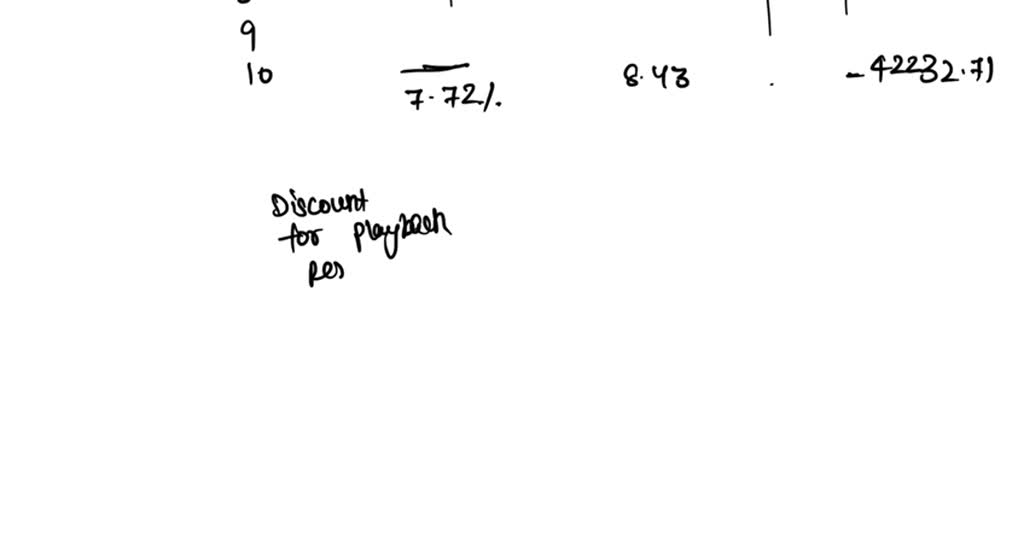 9
10 7.72%. 8.43 . -42232.71
Discount
for playback
per